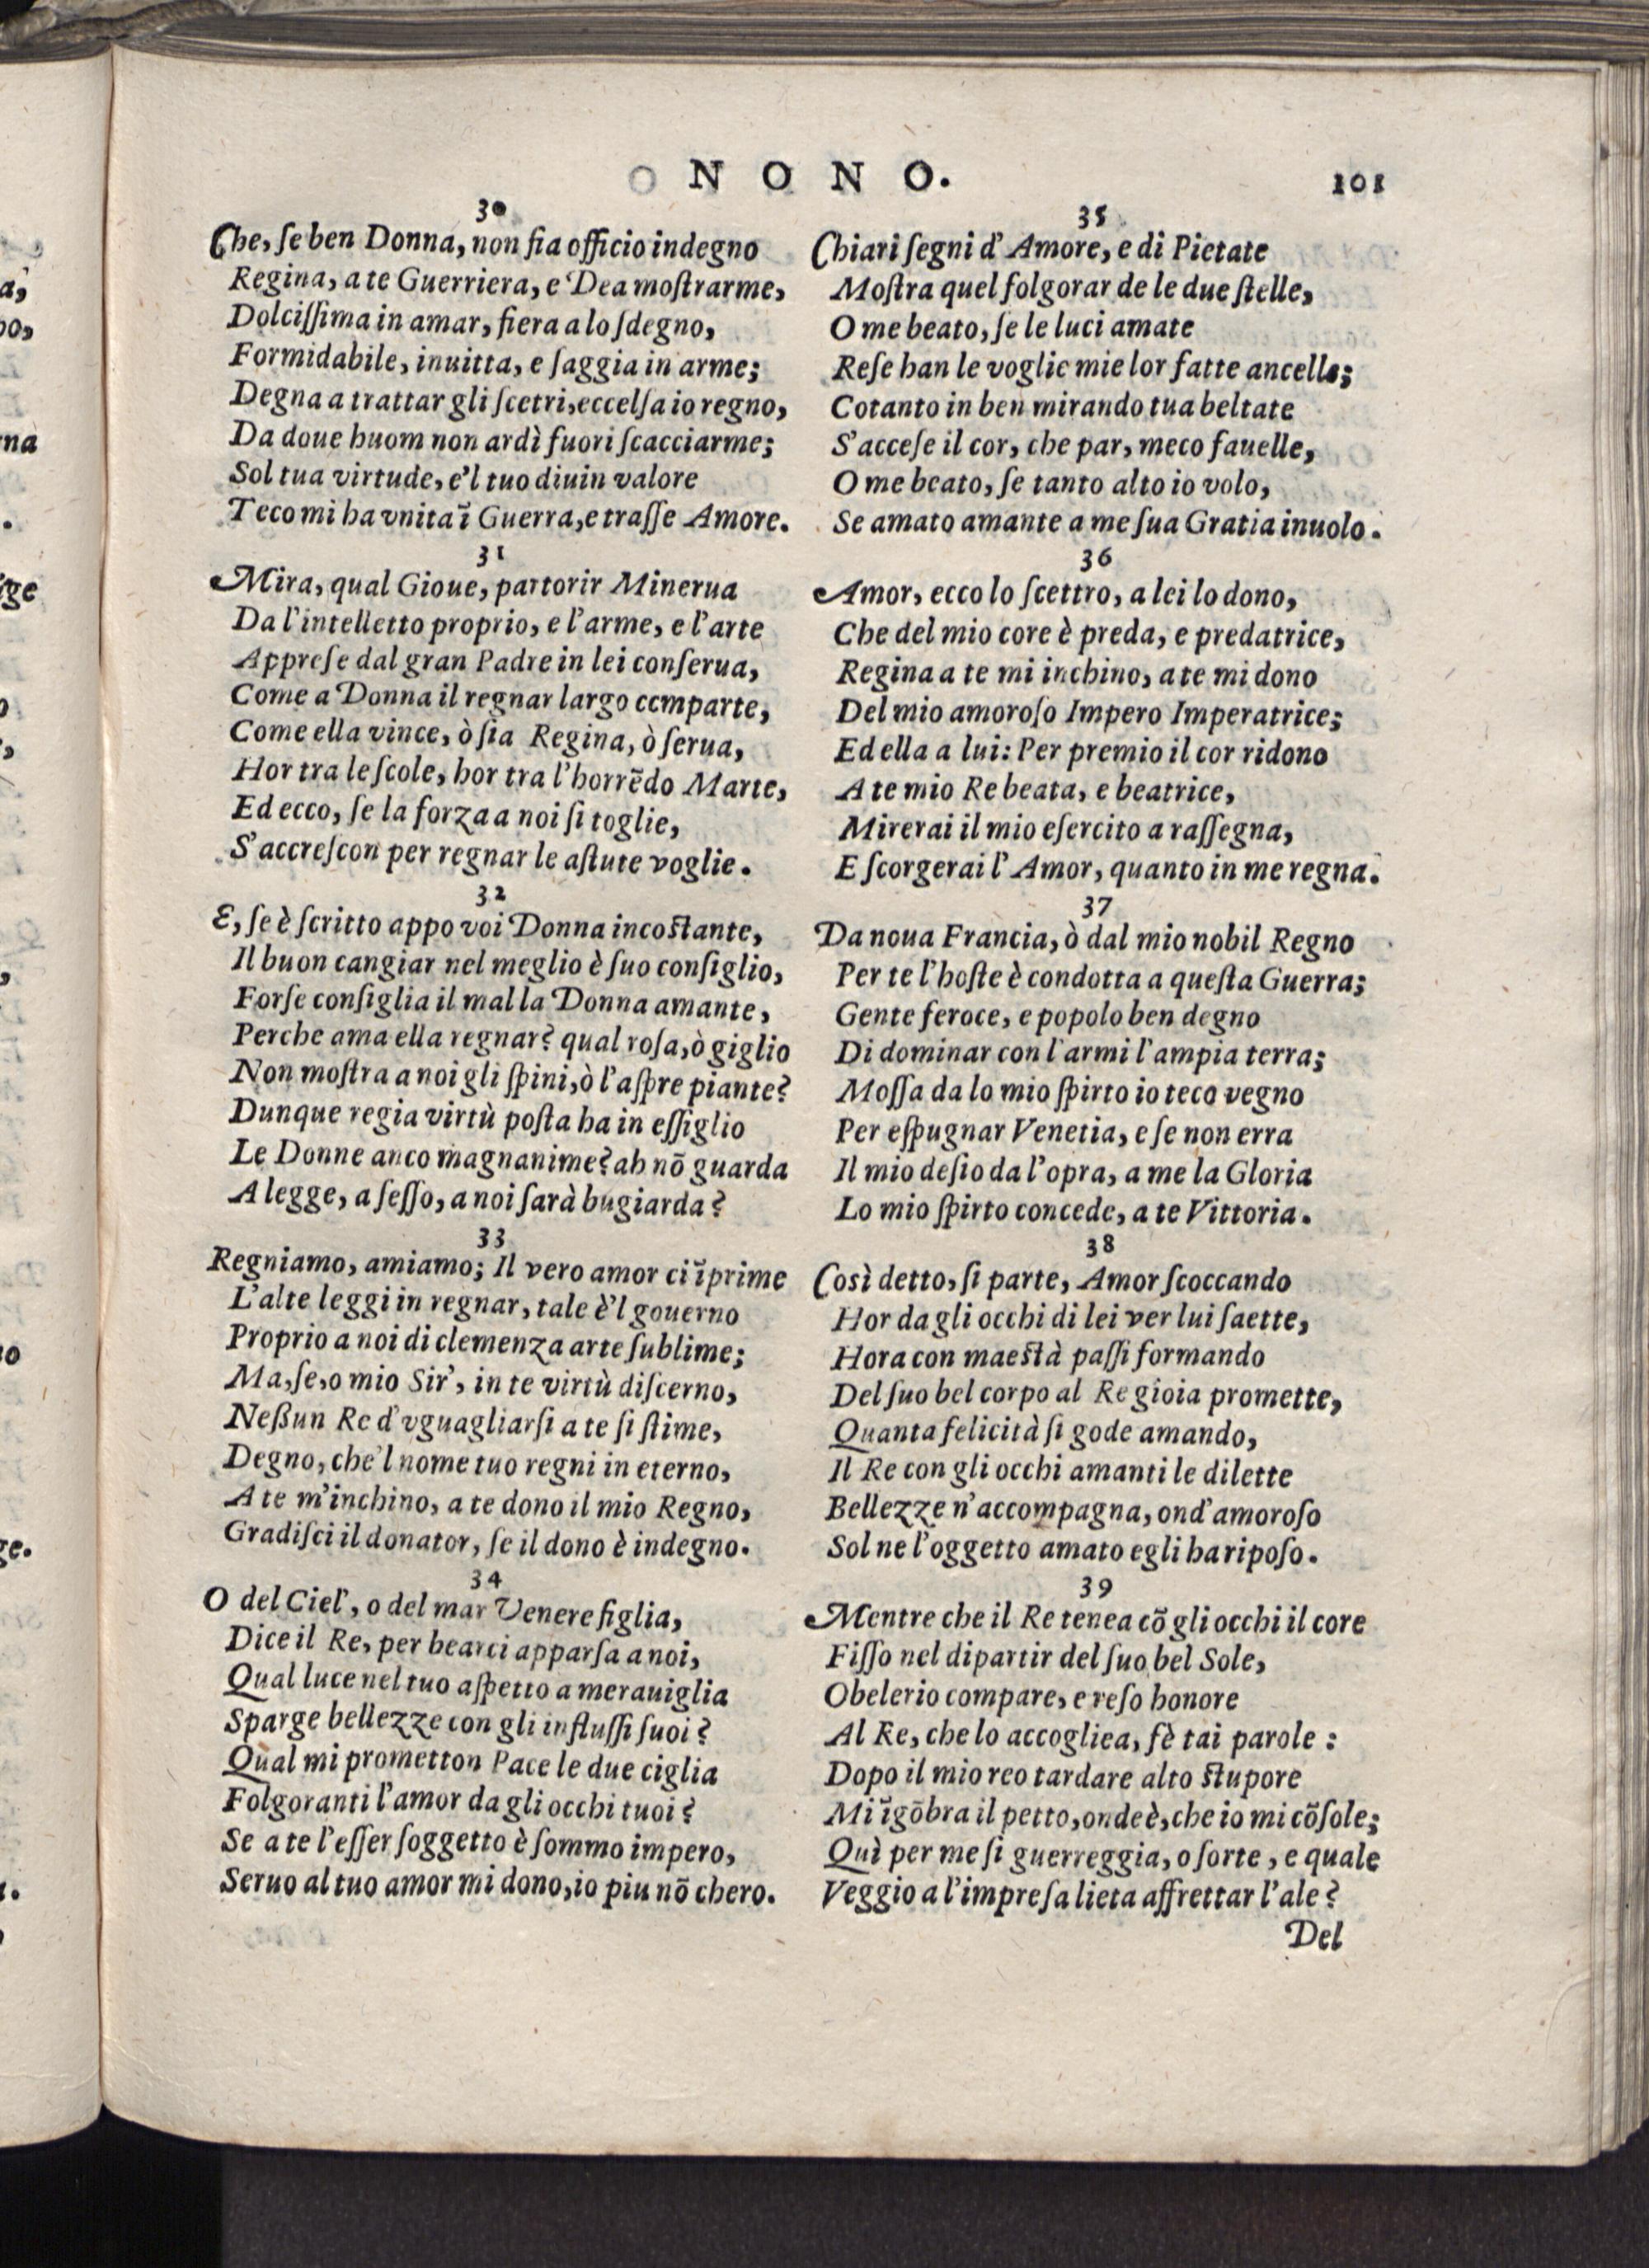 NONO.
101
30
Che, ſe ben Donna, non fia officio indegno
Regina, a te Guerriera, e Dea moſtrarme,
Dolciſſima in amar, fiera a lo ſdegno,
Formidabile, inuitta, e ſaggia in arme;
Degna a trattar gli ſcetri, eccelſa io regno,
Da doue huom non ardì fuori ſcacciarme;
Sol tua virtude, e'l tuo diuin valore
Teco mi ha vnita ĩ Guerra, e traſſe Amore.
31
Mira, qual Gioue, partorir Minerua
Da l'intelletto proprio, e l'arme, e l'arte
Appreſe dal gran Padre in lei conſerua,
Come a Donna il regnar largo ccmparte,
Come ella vince, ò ſia Regina, ò ſerua,
Hor tra le ſcole, hor tra l'horrẽdo Marte,
Ed ecco, ſe la forza a noi ſi toglie,
S'accreſcon per regnar le aſtute voglie.
32
E, ſe è ſcritto appo voi Donna incoſtante,
Il buon cangiar nel meglio è ſuo conſiglio,
Forſe conſiglia il mal la Donna amante,
Perche ama ella regnar? qual roſa, ò giglio
Non moſtra a noi gli ſpini, ò l'aſpre piante?
Dunque regia virtù poſta ha in eſſiglio
Le Donne anco magnanime? ah nõ guarda
A legge, a ſeſſo, a noi ſarà bugiarda?
33
Regniamo, amiamo; Il vero amor ci ĩprime
L'alte leggi in regnar, tale è'l gouerno
Proprio a noi di clemenza arte ſublime;
Ma, ſe, o mio Sir', in te virtù diſcerno,
Neßun Re d'vguagliarſi a te ſi ſtime,
Degno, che'l nome tuo regni in eterno,
A te m'inchino, a te dono il mio Regno,
Gradiſci il donator, ſe il dono è indegno.
34
O del Ciel', o del mar Venere figlia,
Dice il Re, per bearci apparſa a noi,
Qual luce nel tuo aſpetto a merauiglia
Sparge bellezze con gli influſſi ſuoi?
Qual mi prometton Pace le due ciglia
Folgoranti l'amor da gli occhi tuoi?
Se a te l'eſſer ſoggetto è ſommo impero,
Seruo al tuo amor mi dono, io piu nõ chero.
35
Chiari ſegni d'Amore, e di Pietate
Moſtra quel folgorar de le due ſtelle,
O me beato, ſe le luci amate
Reſe han le voglie mie lor fatte ancelle;
Cotanto in ben mirando tua beltate
S'acceſe il cor, che par, meco fauelle,
O me beato, ſe tanto alto io volo,
Se amato amante a me ſua Gratia inuolo.
36
Amor, ecco lo ſcettro, a lei lo dono,
Che del mio core è preda, e predatrice,
Regina a te mi inchino, a te mi dono
Del mio amoroſo Impero Imperatrice;
Ed ella a lui: Per premio il cor ridono
A te mio Re beata, e beatrice,
Mirerai il mio eſercito a raſſegna,
E ſcorgerai l'Amor, quanto in me regna.
37
Da noua Francia, ò dal mio nobil Regno
Per te l'hoſte è condotta a queſta Guerra;
Gente feroce, e popolo ben degno
Di dominar con l'armi l'ampia terra;
Moſſa da lo mio ſpirto io teco vegno
Per eſpugnar Venetia, e ſe non erra
Il mio deſio da l'opra, a me la Gloria
Lo mio ſpirto concede, a te Vittoria.
38
Così detto, ſi parte, Amor ſcoccando
Hor da gli occhi di lei ver lui ſaette,
Hora con maeſtà paſſi formando
Del ſuo bel corpo al Re gioia promette,
Quanta felicità ſi gode amando,
Il Re con gli occhi amanti le dilette
Bellezze n'accompagna, ond'amoroſo
Sol ne l'oggetto amato egli ha ripoſo.
39
Mentre che il Re tenea cõ gli occhi il core
Fiſſo nel dipartir del ſuo bel Sole,
Obelerio compare, e reſo honore
Al Re, che lo accogliea, fè tai parole:
Dopo il mio reo tardare alto ſtupore
Mi ĩgõbra il petto, onde è, che io mi cõſole;
Quì per me ſi guerreggia, o ſorte, e quale
Veggio a l'impreſa lieta affrettar l'ale?
Del